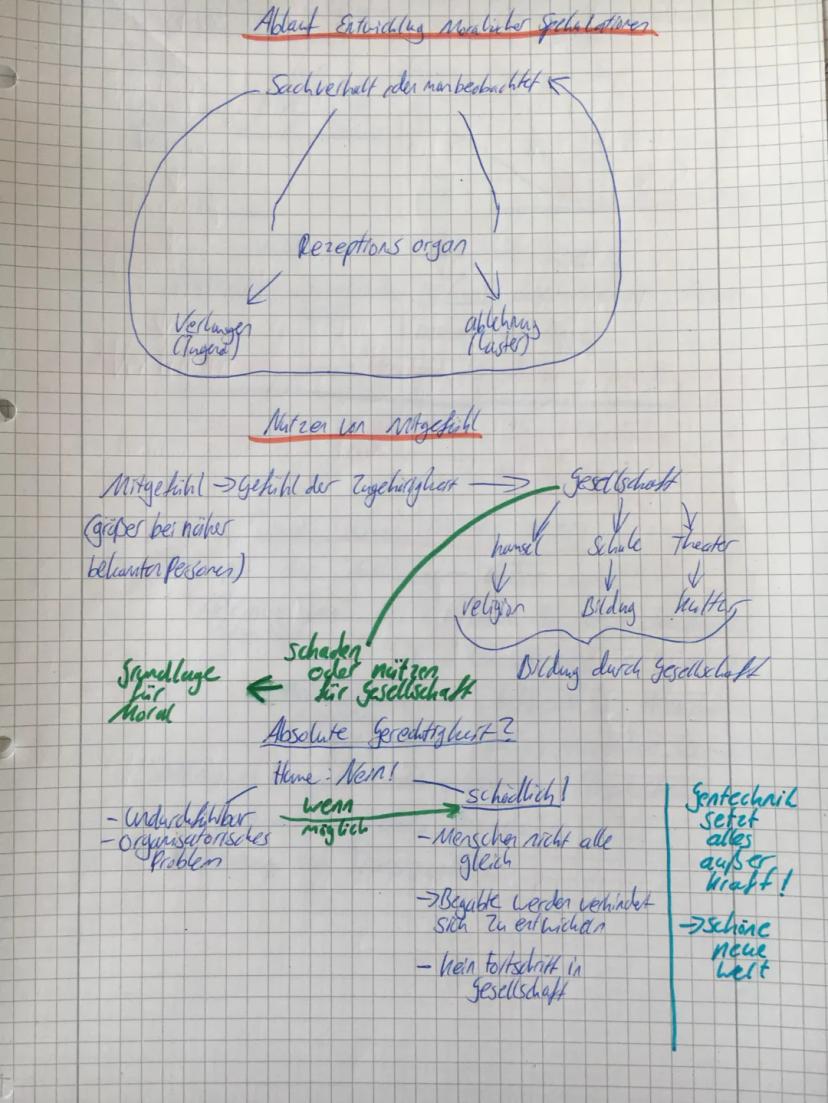 Ablauf Entwicklug Moralischer Spekulationen
Sachverhalt den man beobachtet
Rezeptions organ
Verlangen
(Tugend)
ablehnung
(Laster)
Nutzen von Mitgefühl
Mitgefühl → Gefühl der Zugehörigkeit → Gesellschaft
(größer bei näher
bekannten Personen)
Schule
Theater
religion
Bildung
Kultur
Bildung durch Gesellschaft
schaden
oder nützen
für Gesellschaft
Grundlage
für
Moral
Absolute Gerechtigkeit?
Hume: Nein!
- Undurchführbar
- Organisatorisches
Problem
wenn
möglich
schädlich!
- Menschen nicht alle
gleich
→ Begabte werden verhindert
sich zu entwickeln
- kein Fortschritt in
Gesellschaft
Gentechnik
setzt
alles
außer
kraft!
→ schöne
neue
welt